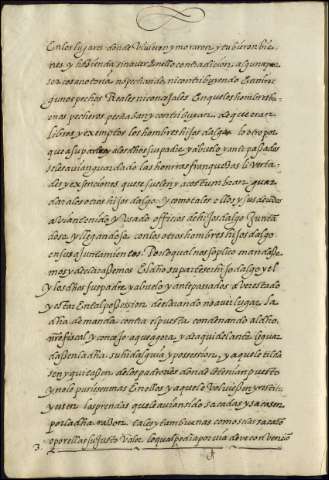 En los lugares donde Viuieron y moraron y tubieron bie-
nes y hazienda sin auer auido contradicion alguna por
ser cosa notoria no pechando ni contribuyendo En nin-
gunos pechos Reales ni conçejales En que los hombres bu-
enos pecheros pechauan y contribuyan de que eran
libres y exemptos los hombres hijos dalgo lo otro por
que a su parte y a los dhos su padre y abuelo y antepasados
se les auian guardado las honrras franquezas liberta-
des y exsenciones que se suelen y acostumbran guar
dar a los otros hijos dalgo y como tales ellos y sus deudos
auian tenido y Usado officios de hijos dalgo Junta
dose y llegandose con los otros hombres hijos dalgo
en sus ajuntamientos Por lo qual nos suplico mandase
mos y declarasemos El dho su parte ser hijo dalgo y el
y los dhos su padre y abuelo y antepasados auer estado
y estar En tal possession declarando no auer lugar la
dha demanda contra El puesta condenando al dho
nro fiscal y conçejo a que agora y de aqui delante le guar
dasen la dha su hidalguia y possession y a que le tilda
sen y quitasen de los padrones donde le tenian puesto
y no le pusiesen mas En ellos y a que le Voluiesen y restitu
yesen las prendas que le auian sido sacadas y sacasen
por la dha Razon tales y tan buenas como se las sacaron
o por ellas su justo Valor lo qual pedia por via de reconVencion
3